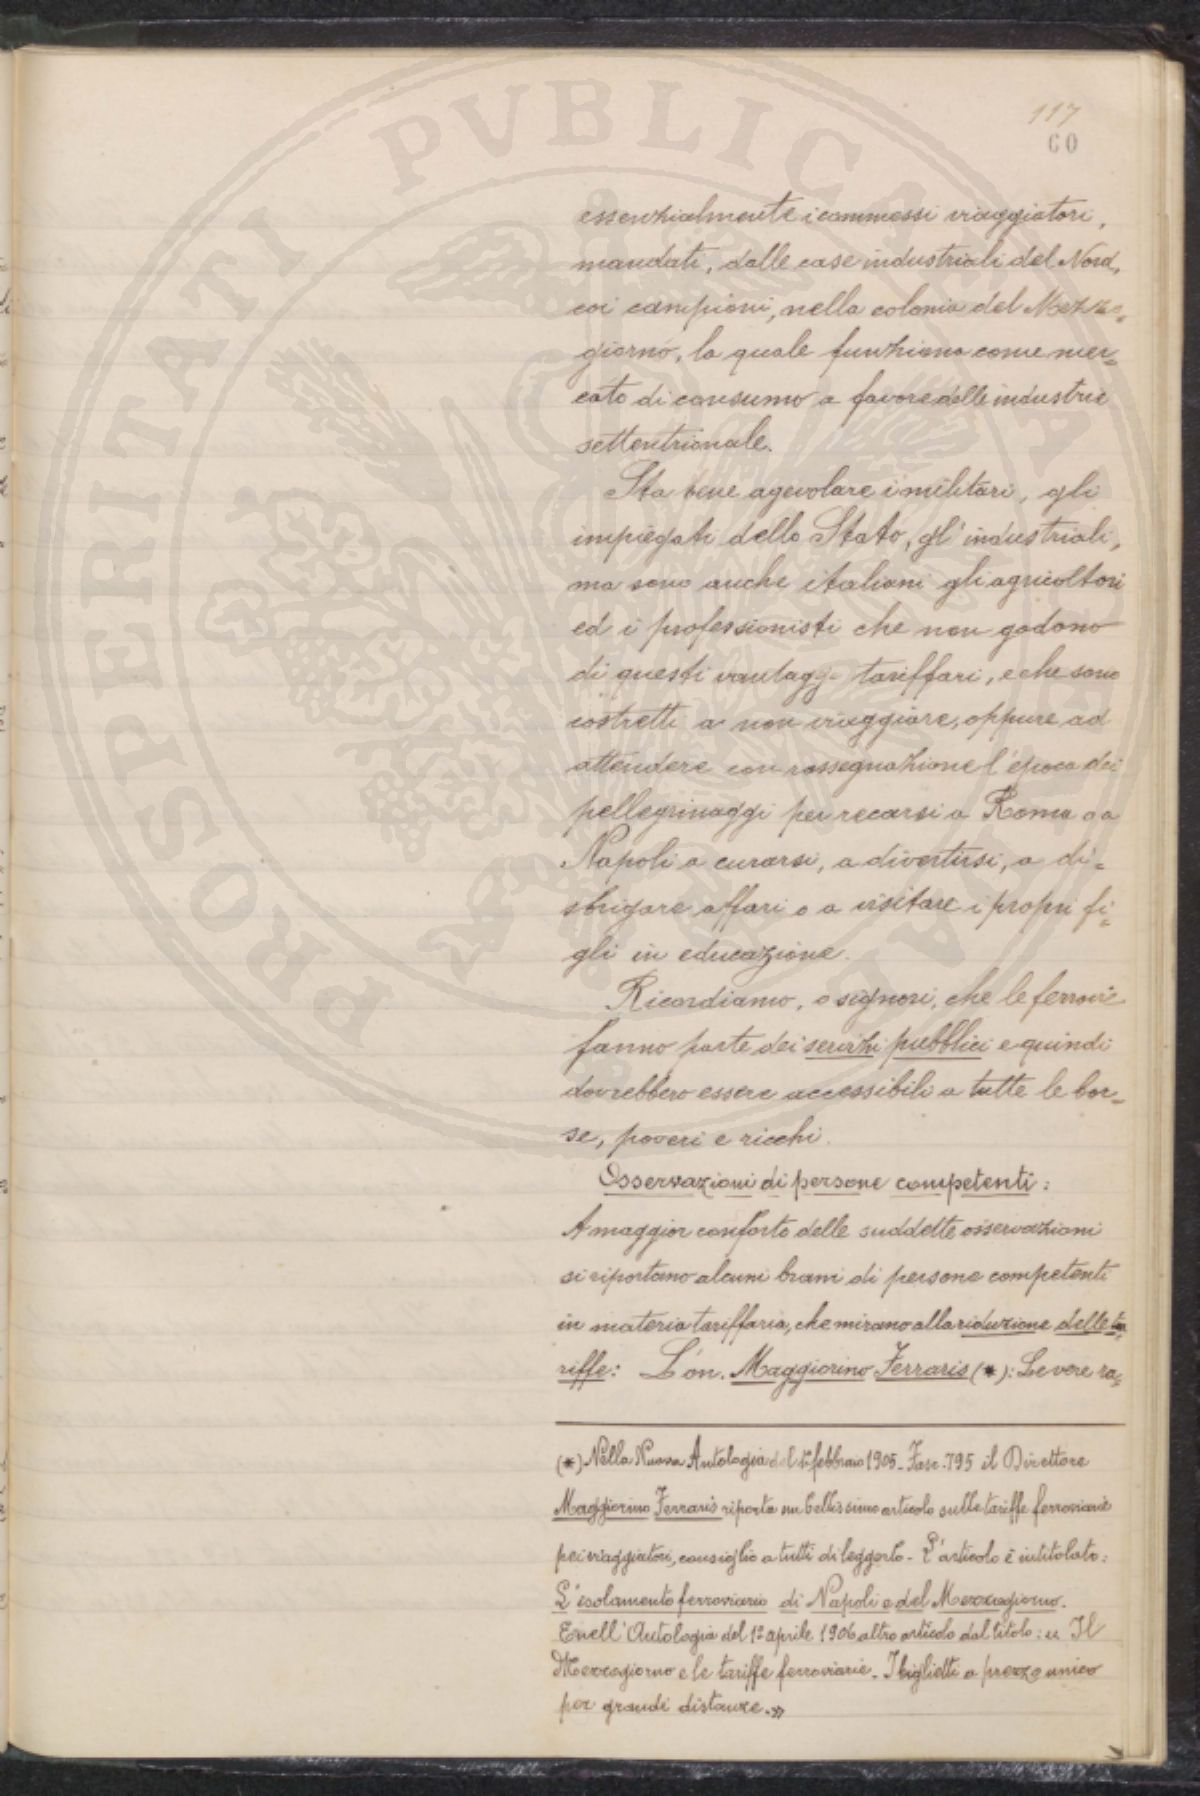 117
60
essenzialmente i commessi viaggiatori,
mandati, dalle case industriali del Nord,
coi campioni, nella colonia del Mezzo=
giorno, la quale funziona come mer=
cato di consumo a favore delle industrie
settentrionale.
Sta bene agevolare i militari, gli
impiegati dello Stato, gl'industriali,
ma sono anche italiani gli agricoltori
ed i professionisti che non godono
di questi vantaggi tariffari, e che sono
costretti a non viaggiare, oppure ad
attendere con rassegnazione l'epoca dei
pellegrinaggi per recarsi a Roma o a
Napoli a curarsi, a divertirsi, a di=
sbrigare affari o a visitare i propri fi=
gli in educazione.
Ricordiamo, o signori, che le ferrovie
fanno parte dei servizi pubblici e quindi
dovrebbero essere accessibili a tutte le bor=
se, poveri e ricchi.
Osservazioni di persone competenti:
A maggior conforto delle suddette osservazioni
si riportano alcuni brani di persone competenti
in materia tariffaria, che mirano alla riduzione delle ta=
riffe: L'on. Maggiorino Ferraris (*): Le vere ra=
(*) Nella Nuova Antologia del 1º febbraio 1905 - Fasc. 795 il Direttore
Maggiorino Ferraris riporta un bellissimo articolo sulle tariffe ferroviarie
pei viaggiatori, consiglio a tutti di leggerlo - L'articolo è intitolato:
L'isolamento ferroviario di Napoli e del Mezzogiorno.
E nell'Antologia del 1º aprile 1906 altro articolo dal titolo: « Il
Mezzogiorno e le tariffe ferroviarie - I biglietti a prezzo unico
per grandi distanze. »
PROSPERITATI PVBLICAE